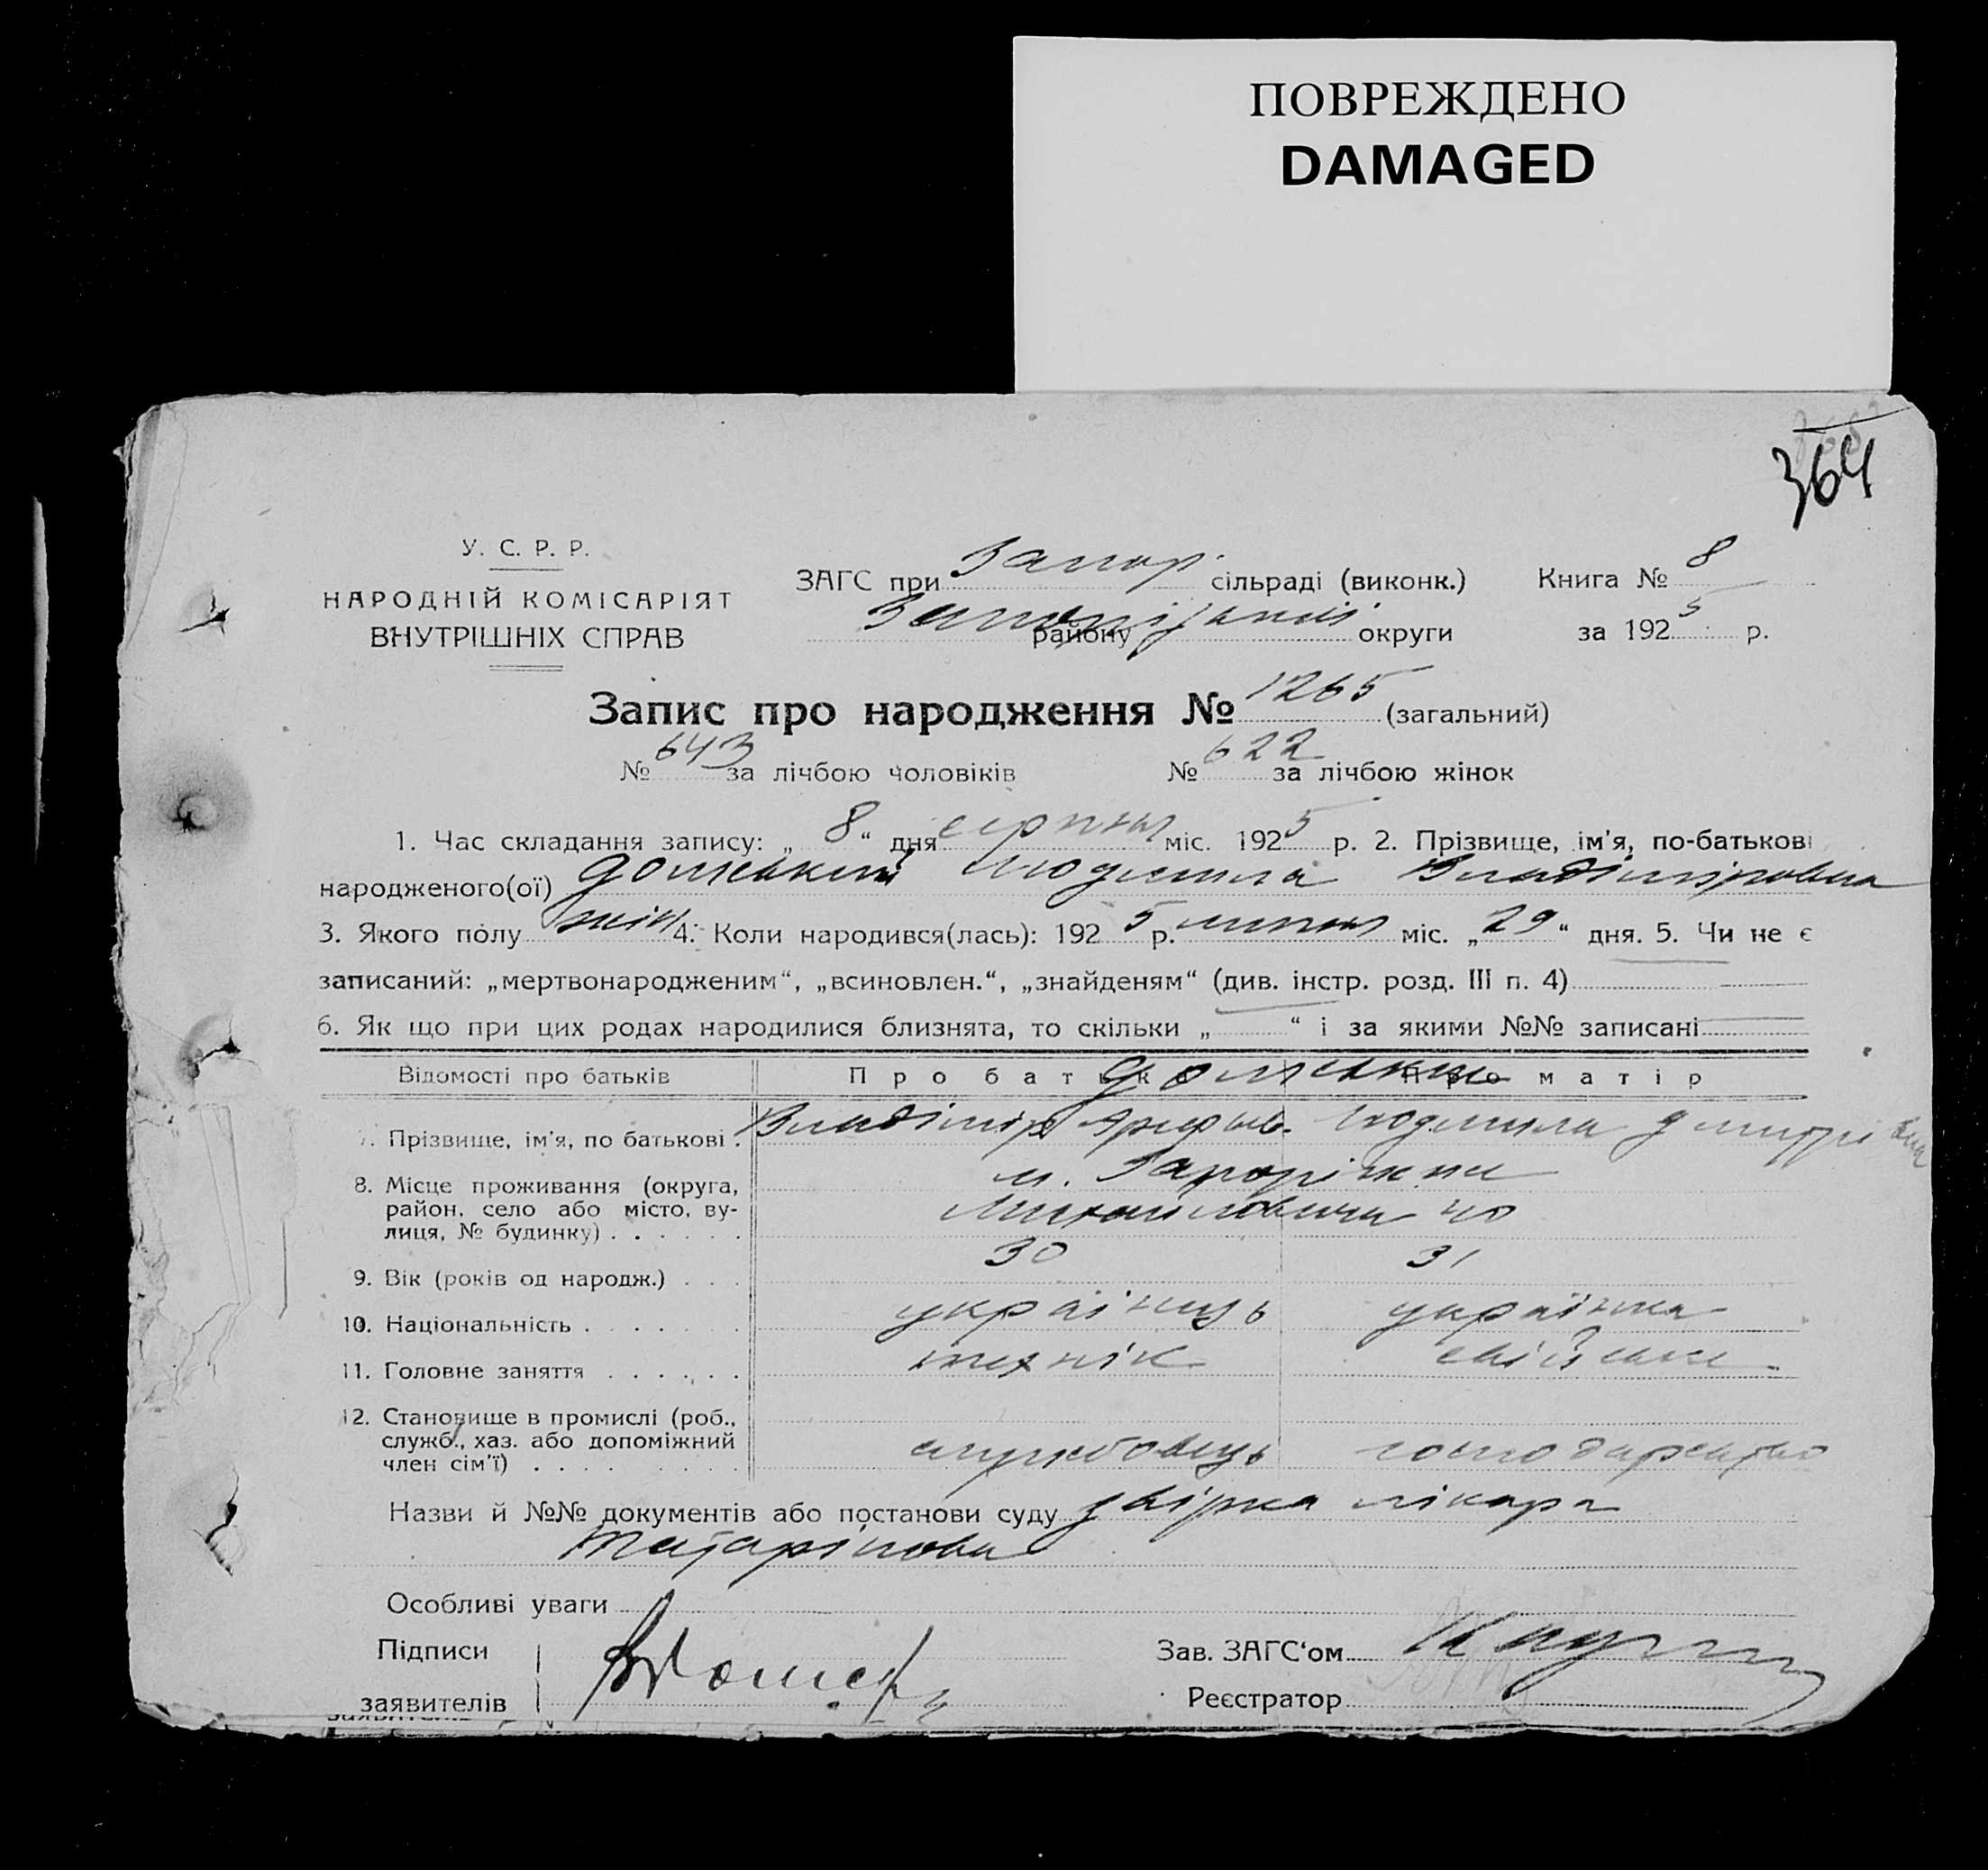 ПОВРЕЖДЕНО
DAMAGED
364
У. С. Р. Р.
НАРОДНІЙ КОМІСАРІЯТ
ВНУТРІШНІХ СПРАВ
ЗАГС при Запор. сільраді (виконк.) Книга № 8
району округи за 1925 р.
Запис про народження № 1265 (загальний)
№ 643 за лічбою чоловіків № 622 за лічбою жінок
1. Час складання запису: „ 8 “ дня серпня міс. 1925 р. 2. Прізвище, ім'я, по-батькові
народженого(ої) Людмила Владіміровна
3. Якого полу жін 4. Коли народився(лась): 1925 р. липня міс. „29“ дня. 5. Чи не є
записаний: „мертвонародженим“, „всиновлен.“, „знайденям“ (див. інстр. розд. III п. 4)
6. Як що при цих родах народилися близнята, то скільки „ “ і за якими №№ записані
Відомості про батьків Про батька Про матір
7. Прізвище, ім'я, по батькові . Владімір Людмила Дмитрівна
8. Місце проживання (округа, м. Запоріжжя
район, село або місто, ву- 40
лиця, № будинку) . . . . . .
9. Вік (років од народж.) . . . 30 31
10. Національність . . . . . . . українець українка
11. Головне заняття . . . . . . технік свійське
12. Становище в промислі (роб.,
служб., хаз. або допоміжний службовець господарство
член сім'ї) . . . .
Назви й №№ документів або постанови суду лікаря
Татарінова
Особливі уваги
Підписи Зав. ЗАГС'ом
заявителів Реєстратор